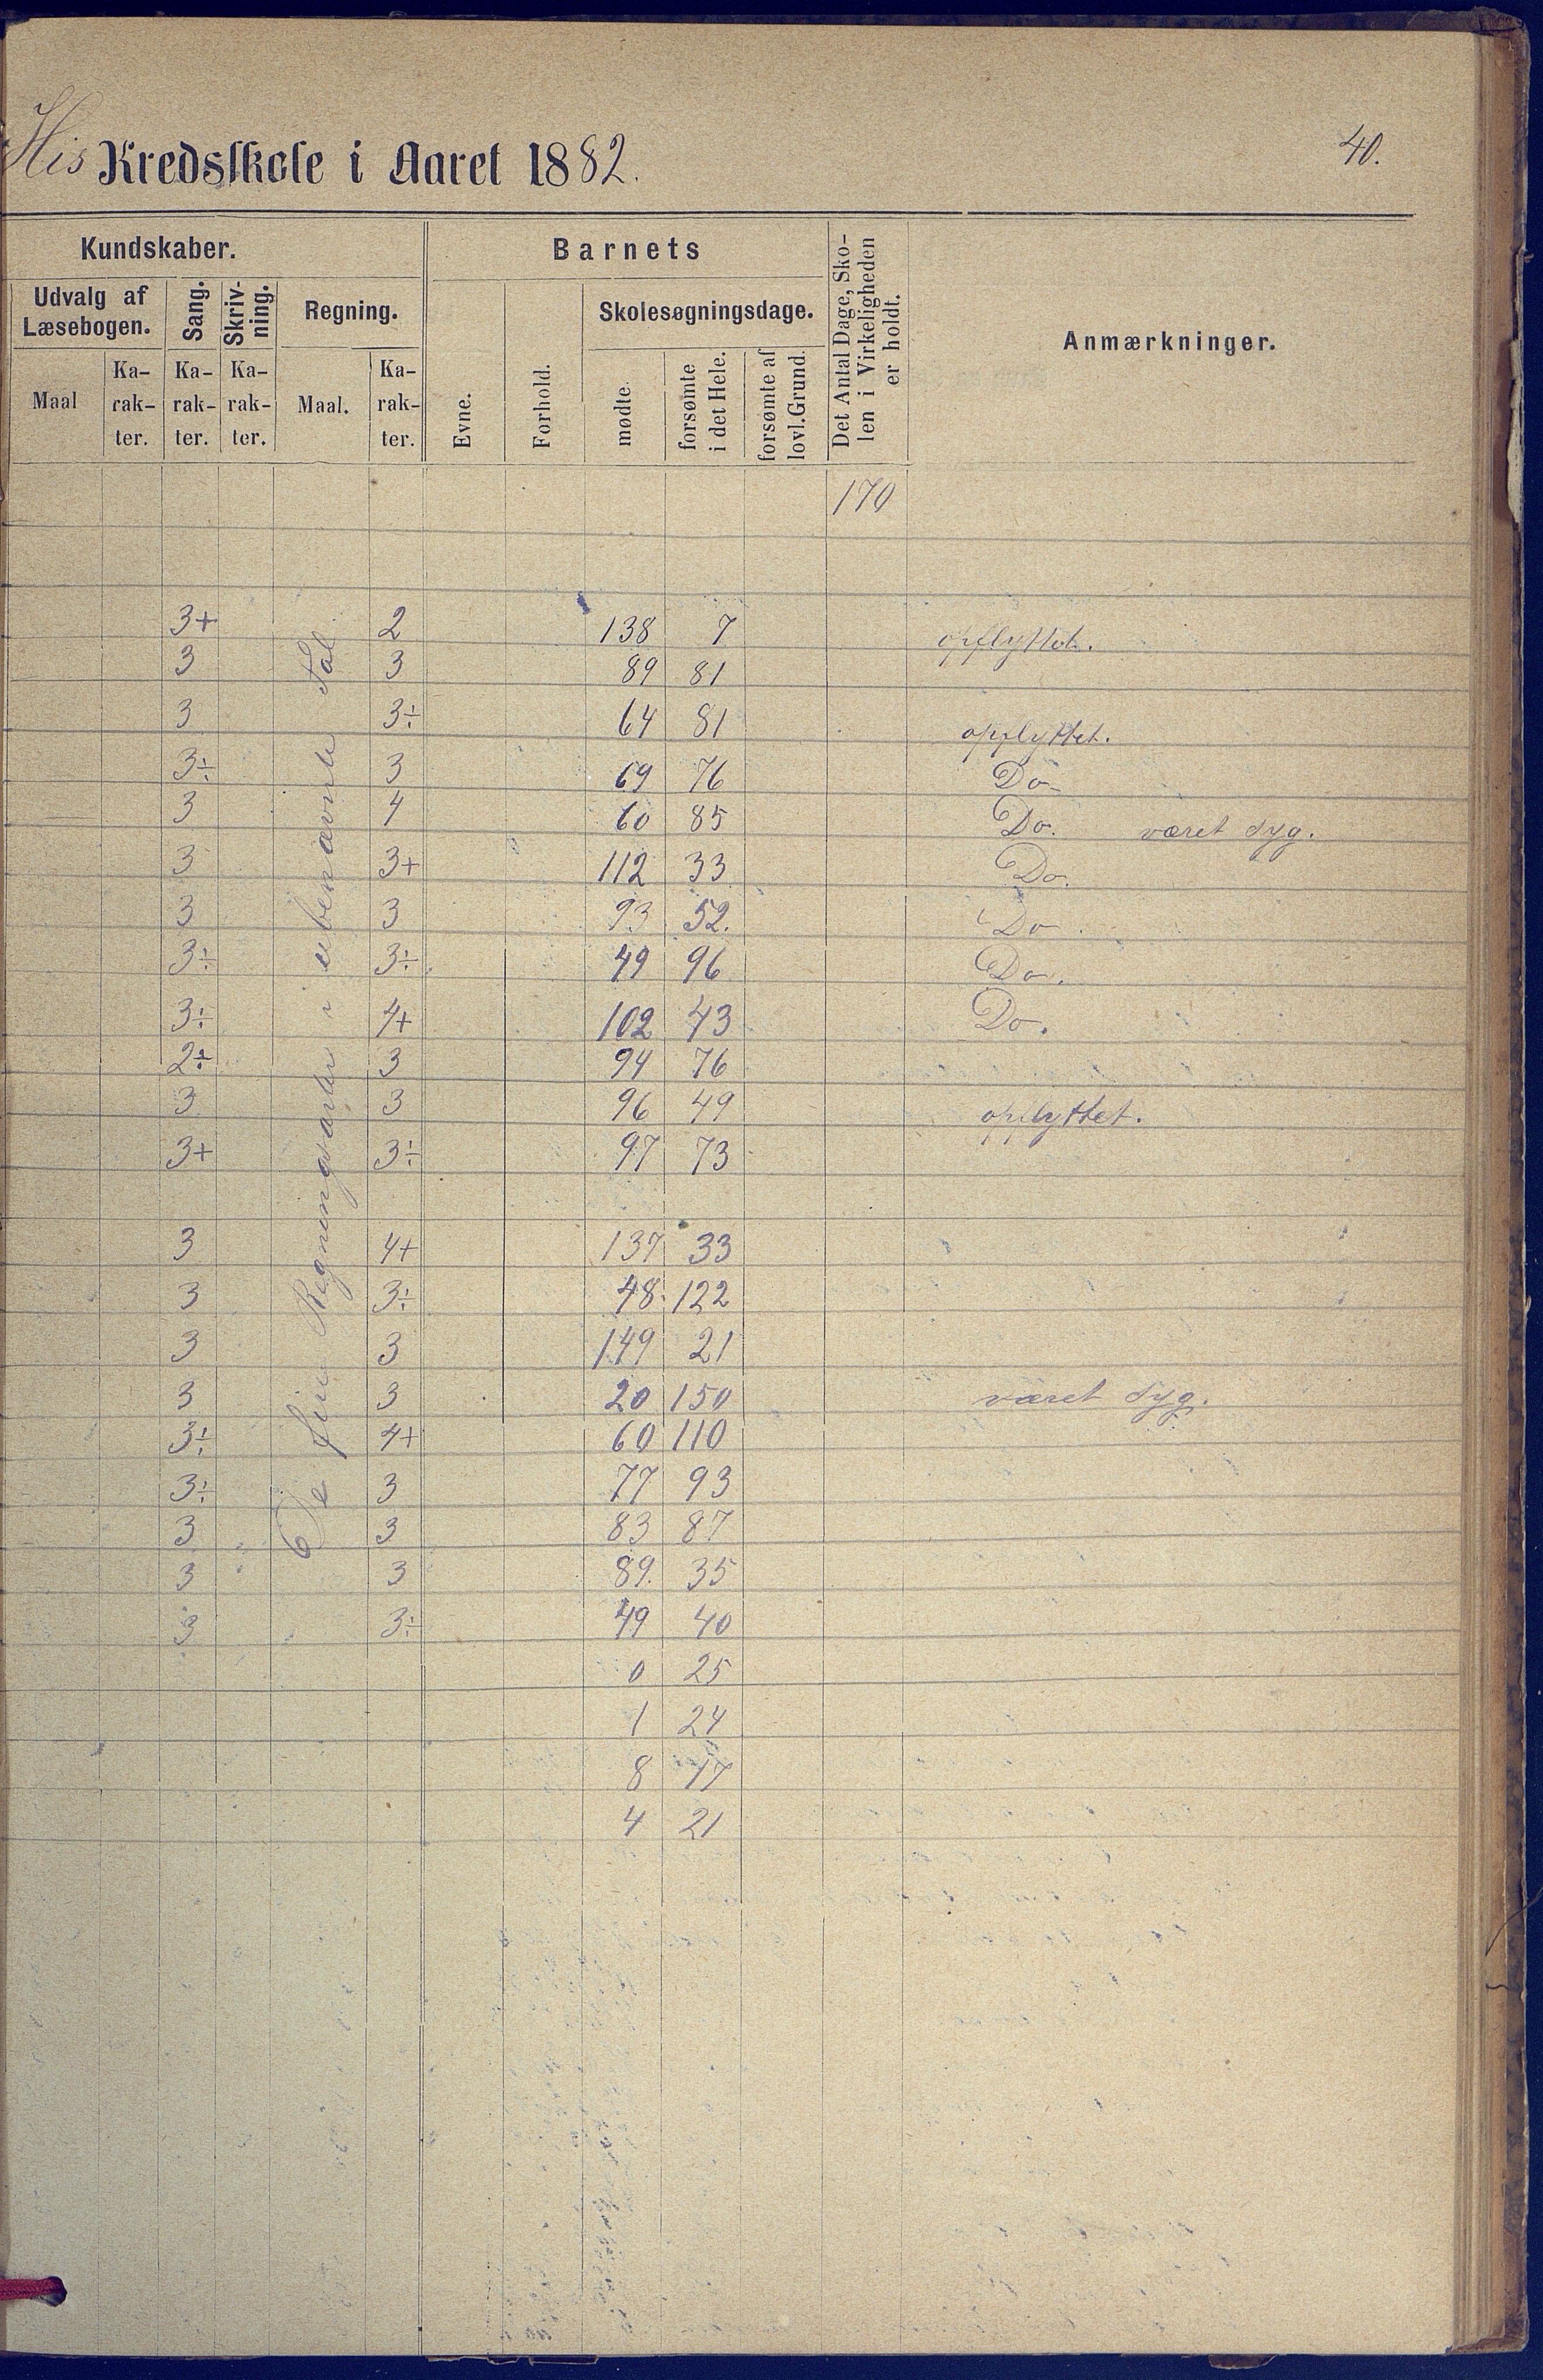 His Kredsskole i Aaret 1882.
40.
Kundskaber.
Barnets
Det Antal Dage, Sko-
len i Virkeligheden
er holdt.
Anmærkninger.
Udvalg af
Læsebogen.
Sang.
Skriv-
ning.
Regning.
Evne.
Forhold.
Skolesøgningsdage.
Maal
Ka-
rak-
ter.
Ka-
rak-
ter.
Ka-
rak-
ter.
Maal.
Ka-
rak-
ter.
mødte.
forsømte
i det Hele.
forsømte af
lovl. Grund.
170
De fire Regningsarter i ubenævnte Tal
3+ 2 138 7 opflyttet.
3 3 89 81
3 3÷ 64 81 opflyttet.
3÷ 3 69 76 Do
3 4 60 85 Do. været syg.
3 3+ 112 33 Do.
3 3 93 52. Do.
3÷ 3÷ 49 96 Do.
3÷ 4+ 102 43 Do.
2÷ 3 94 76
3 3 96 49 opflyttet.
3+ 3÷ 97 73
3 4+ 137 33
3 3÷ 48 122
3 3 149 21
3 3 20 150 været syg.
3÷ 4+ 60 110
3÷ 3 77 93
3 3 83 87
3 3 89. 35
3 3÷ 49 40
0 25
1 24
8 17
4 21